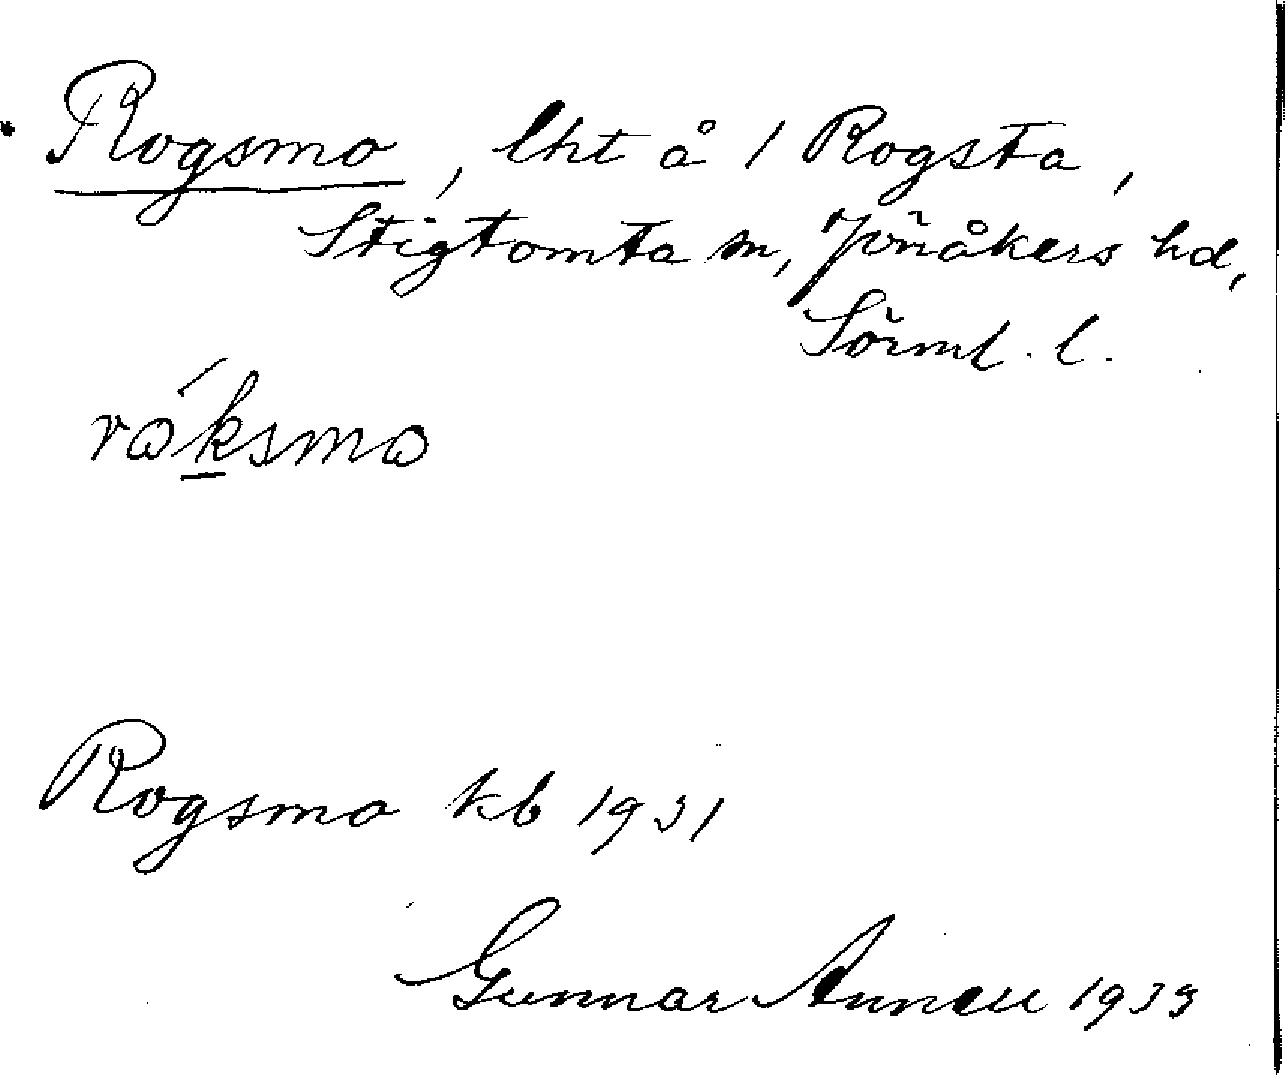 Rogsmo, lht å 1 Rogsta,
Stigtomta sn, Jönåkers hd,
Sörml. l.
rǿksmo
Rogsmo kb 1931
Gunnar Annell 1933